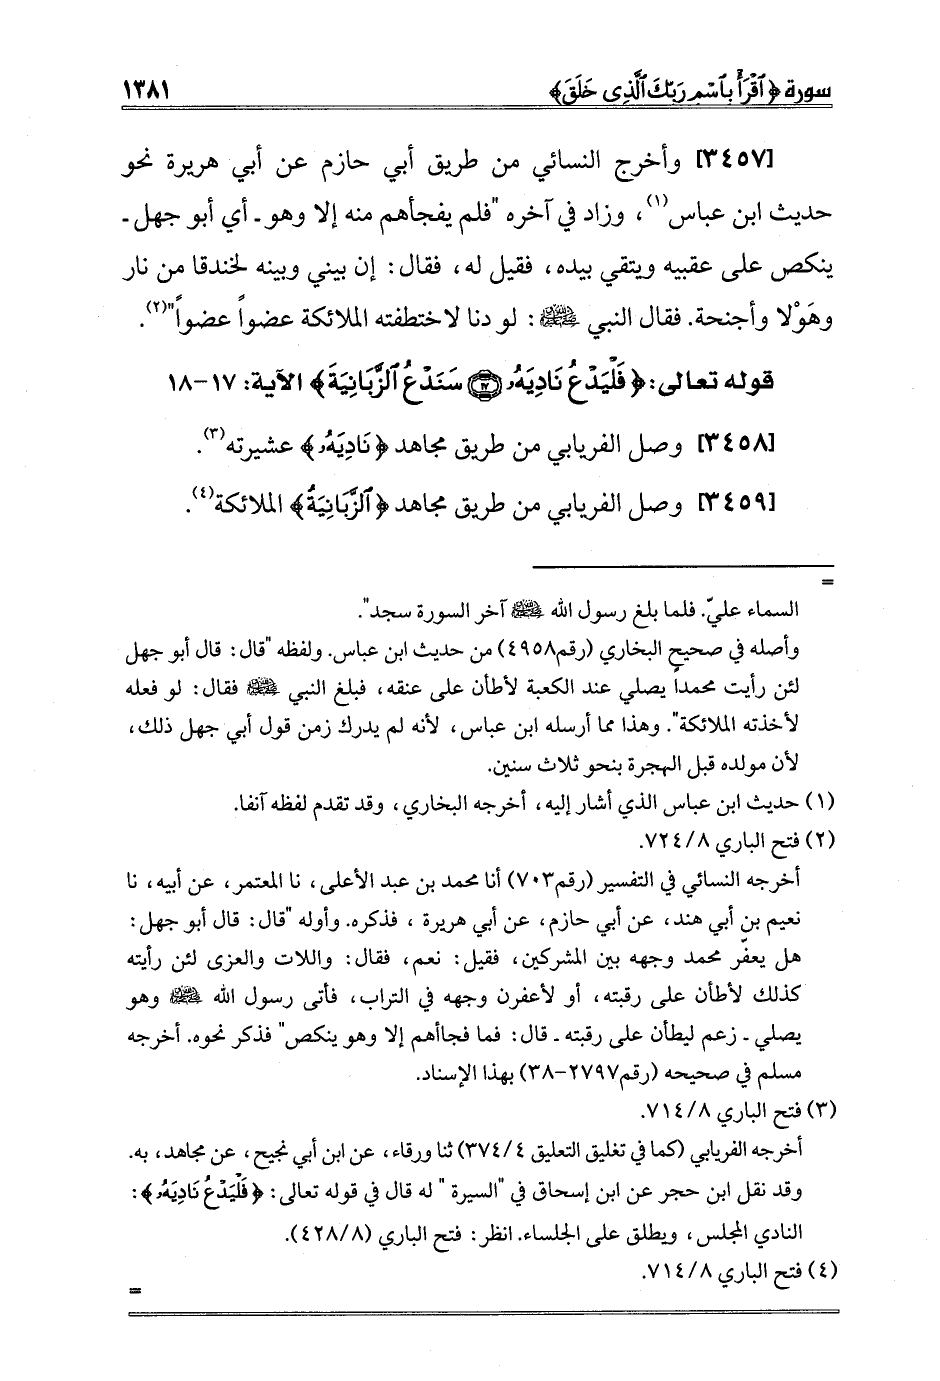 سورة ﴿ٱقْرَأْ بِٱسْمِ رَبِّكَ ٱلَّذِى خَلَقَ﴾ ١٣٨١
[٣٤٥٧] وأخرج النسائي من طريق أبي حازم عن أبي هريرة نحو
حديث ابن عباس(١)، وزاد في آخره "فلم يفجأهم منه إلا وهو ـ أي أبو جهل ـ
ينكص على عقبيه ويتقي بيده، فقيل له، فقال: إن بيني وبينه لخندقا من نار
وهَوْلا وأجنحة. فقال النبي ﷺ: لو دنا لاختطفته الملائكة عضواً عضواً"(٢).
قوله تعالى: ﴿فَلْيَدْعُ نَادِيَهُۥ ۝١٧ سَنَدْعُ ٱلزَّبَانِيَةَ﴾ الآية: ١٧-١٨
[٣٤٥٨] وصل الفريابي من طريق مجاهد ﴿نَادِيَهُۥ﴾ عشيرته(٣).
[٣٤٥٩] وصل الفريابي من طريق مجاهد ﴿ٱلزَّبَانِيَةُ﴾ الملائكة(٤).
=
السماء عليّ. فلما بلغ رسول الله ﷺ آخر السورة سجد".
وأصله في صحيح البخاري (رقم٤٩٥٨) من حديث ابن عباس. ولفظه "قال: قال أبو جهل
لئن رأيت محمداً يصلي عند الكعبة لأطأن على عنقه، فبلغ النبي ﷺ فقال: لو فعله
لأخذته الملائكة". وهذا مما أرسله ابن عباس، لأنه لم يدرك زمن قول أبي جهل ذلك،
لأن مولده قبل الهجرة بنحو ثلاث سنين.
(١) حديث ابن عباس الذي أشار إليه، أخرجه البخاري، وقد تقدم لفظه آنفا.
(٢) فتح الباري ٧٢٤/٨.
أخرجه النسائي في التفسير (رقم٧٠٣) أنا محمد بن عبد الأعلى، نا المعتمر، عن أبيه، نا
نعيم بن أبي هند، عن أبي حازم، عن أبي هريرة ، فذكره. وأوله "قال: قال أبو جهل:
هل يعفّر محمد وجهه بين المشركين، فقيل: نعم، فقال: واللات والعزى لئن رأيته
كذلك لأطأن على رقبته، أو لأعفرن وجهه في التراب، فأتى رسول الله ﷺ وهو
يصلي ـ زعم ليطأن على رقبته ـ قال: فما فجاأهم إلا وهو ينكص" فذكر نحوه. أخرجه
مسلم في صحيحه (رقم٢٧٩٧-٣٨) بهذا الإسناد.
(٣) فتح الباري ٧١٤/٨.
أخرجه الفريابي (كما في تغليق التعليق ٣٧٤/٤) ثنا ورقاء، عن ابن أبي نجيح، عن مجاهد، به.
وقد نقل ابن حجر عن ابن إسحاق في "السيرة " له قال في قوله تعالى: ﴿فَلْيَدْعُ نَادِيَهُۥ﴾:
النادي المجلس، ويطلق على الجلساء. انظر: فتح الباري (٤٢٨/٨).
(٤) فتح الباري ٧١٤/٨.
=